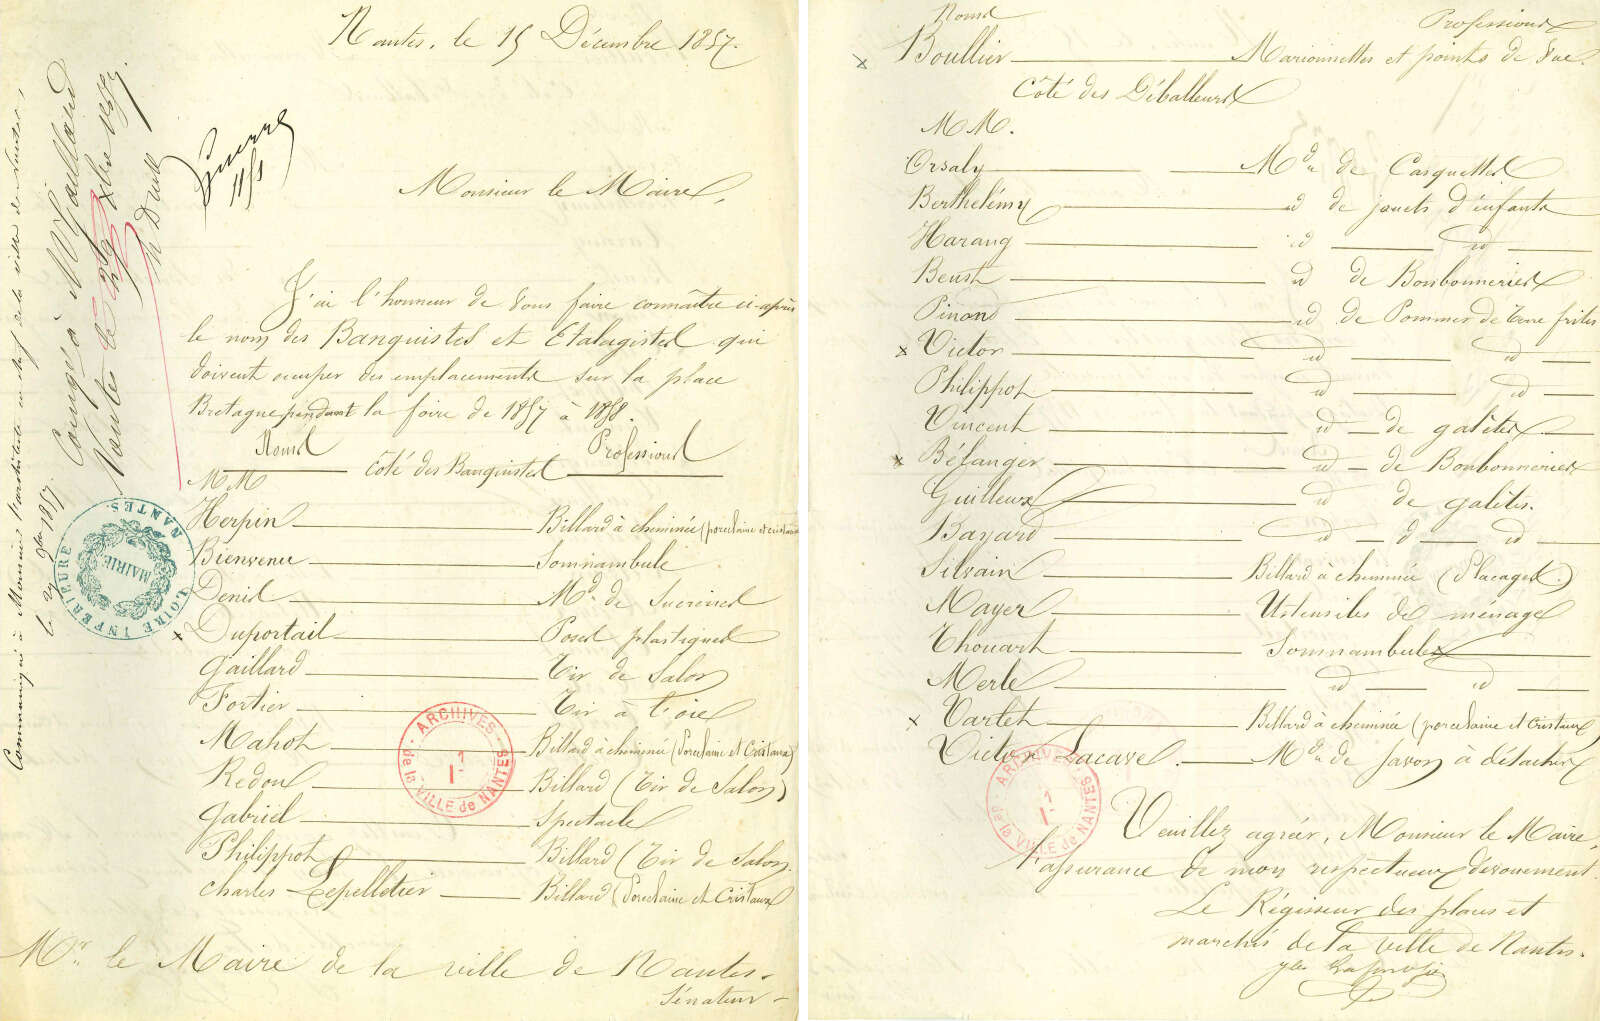 Nantes, le 15 Décembre 1857.
Monsieur le Maire,
J'ai l'honneur de vous faire connaître ci-après
le nom des Banquistes et Etalagistes qui
doivent occuper des emplacements sur la place
Bretagne pendant la foire de 1857 à 1858.
Noms Professions
côté des Banquistes
MM
Herpin Billard à cheminée (porcelaine et cristaux
Bienvenu Somnambule
Denis Md. de Sucreries
x Duportail Poses plastiques
Gaillard Tir de Salon
Fortier Tir à l'oie
Mahot Billard à cheminée (Porcelaine et Cristaux)
Redon Billard (Tir de Salon)
Gabriel Spectacle
Philippot Billard (Tir de Salon.
Charles Lepelletier Billard (Porcelaine et Cristaux
Mr. le Maire de la ville de Nantes.
Sénateur
Communiqué à Monsieur l'architecte en chef de la ville de Nantes,
le 1857.
à Mr
Nantes le 29 Xbre 1857.
11/1
MAIRIE
NANTES.
LOIRE INFÉRIEURE
ARCHIVES
de la VILLE de NANTES
1
I
Noms Professions
x Boullier Marionnettes et points de vue.
Côté des Déballeurs
MM.
Orsaly Md. de Casquettes
Berthélémy id de jouets d'enfants
Harang id id
Beust id de Bonbonneries
Pinond id de Pommes de terre frites
x Victor id id
Philippot id id
Vincent id de galettes
x Bélanger id de Bonbonneries
Guilleux id de galettes.
Bayard id d id
Silvain Billard à cheminée (Placages.)
Mayer Ustensiles de ménage
Thouart Somnambules
Merle id id
x Varlet Billard à cheminée (porcelaine et Cristaux)
Victor Lacavel. Md. de Savon à détacher
Veuillez agréer, Monsieur le Maire,
l'assurance de mon respectueux dévouement.
Le Régisseur des places et
marchés de la ville de Nantes.
ARCHIVES
de la VILLE de NANTES
1
I